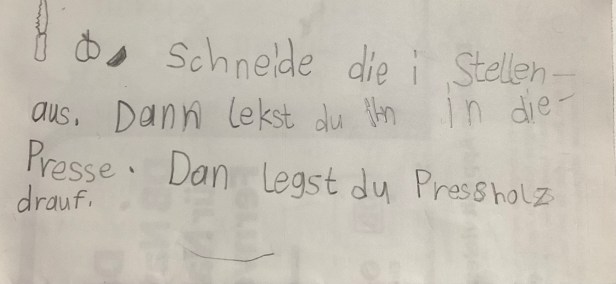 Schneide die i Stellen-
aus. Dann lekst du ihn in die-
Presse. Dan legst du Pressholz
drauf.